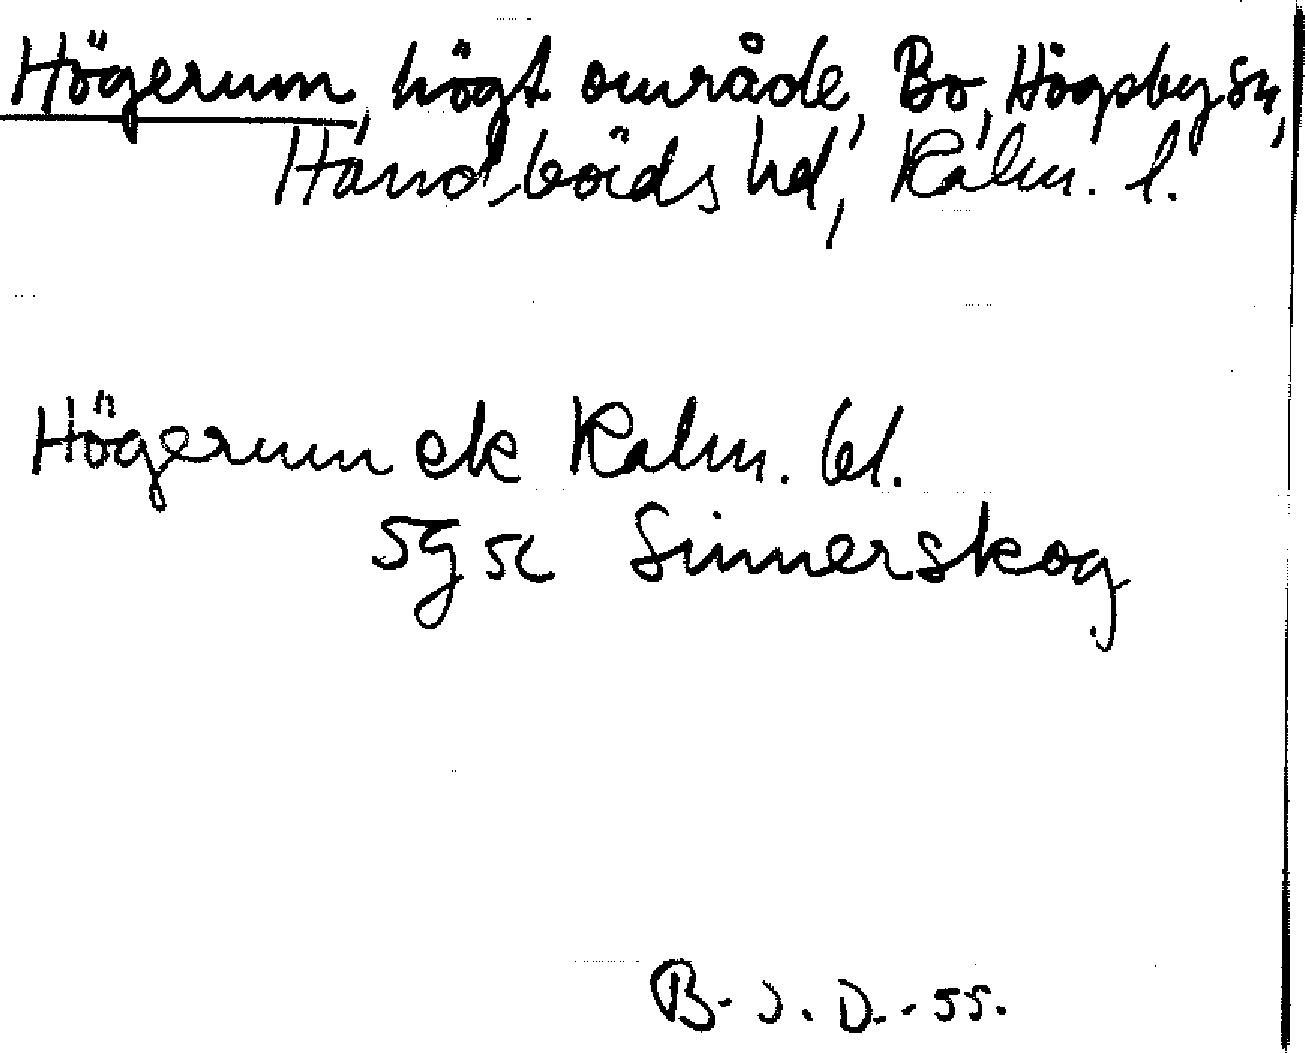 Högerum, högt område, Bo, Högsby sn,
Handbörds hd, Kalm. l.
Högerum ek Kalm. bl.
5g5c Sinnerskog
B. J. D. -55.